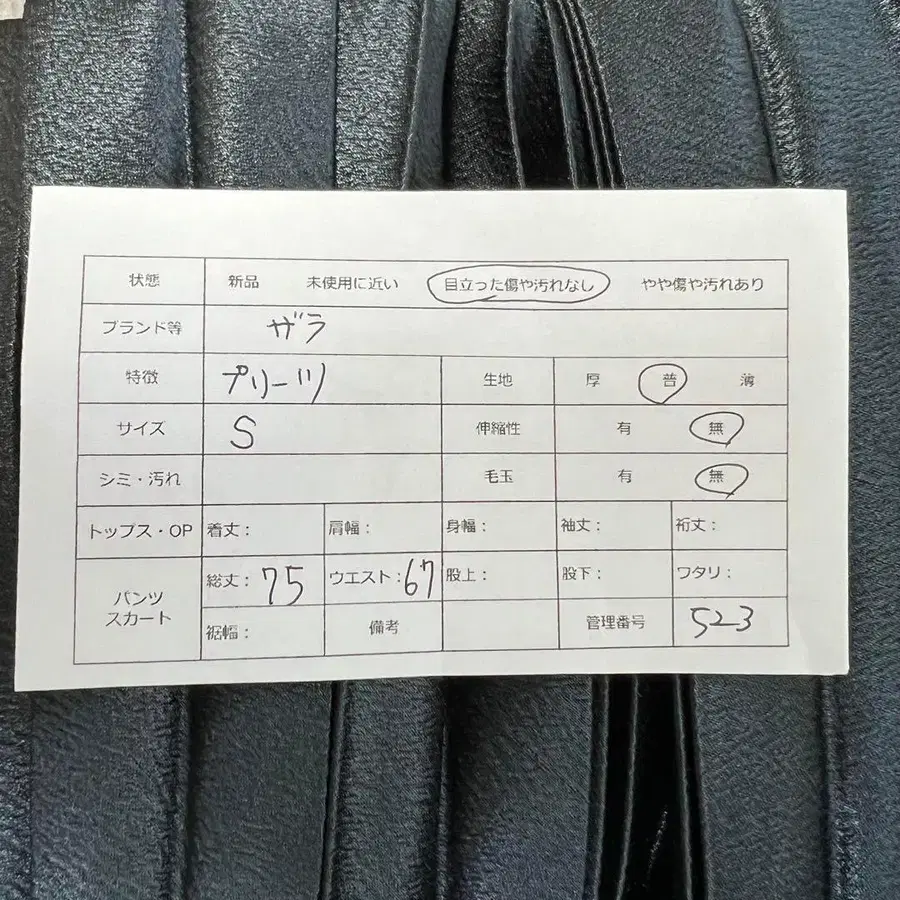 状態 新品 未使用に近い 目立った傷や汚れなし やや傷や汚れあり
ブランド等 ザラ
特徴 プリーツ 生地 厚 普 薄
サイズ S 伸縮性 有 無
シミ・汚れ 毛玉 有 無
トップス・OP 着丈： 肩幅： 身幅： 袖丈： 裄丈：
パンツ
スカート
総丈：75 ウエスト：67 股上： 股下： ワタリ：
裾幅： 備考 管理番号 523